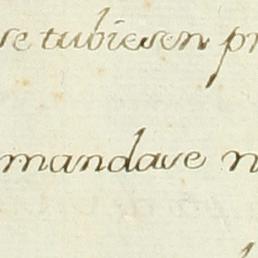 se tubiesen pr
mandase n